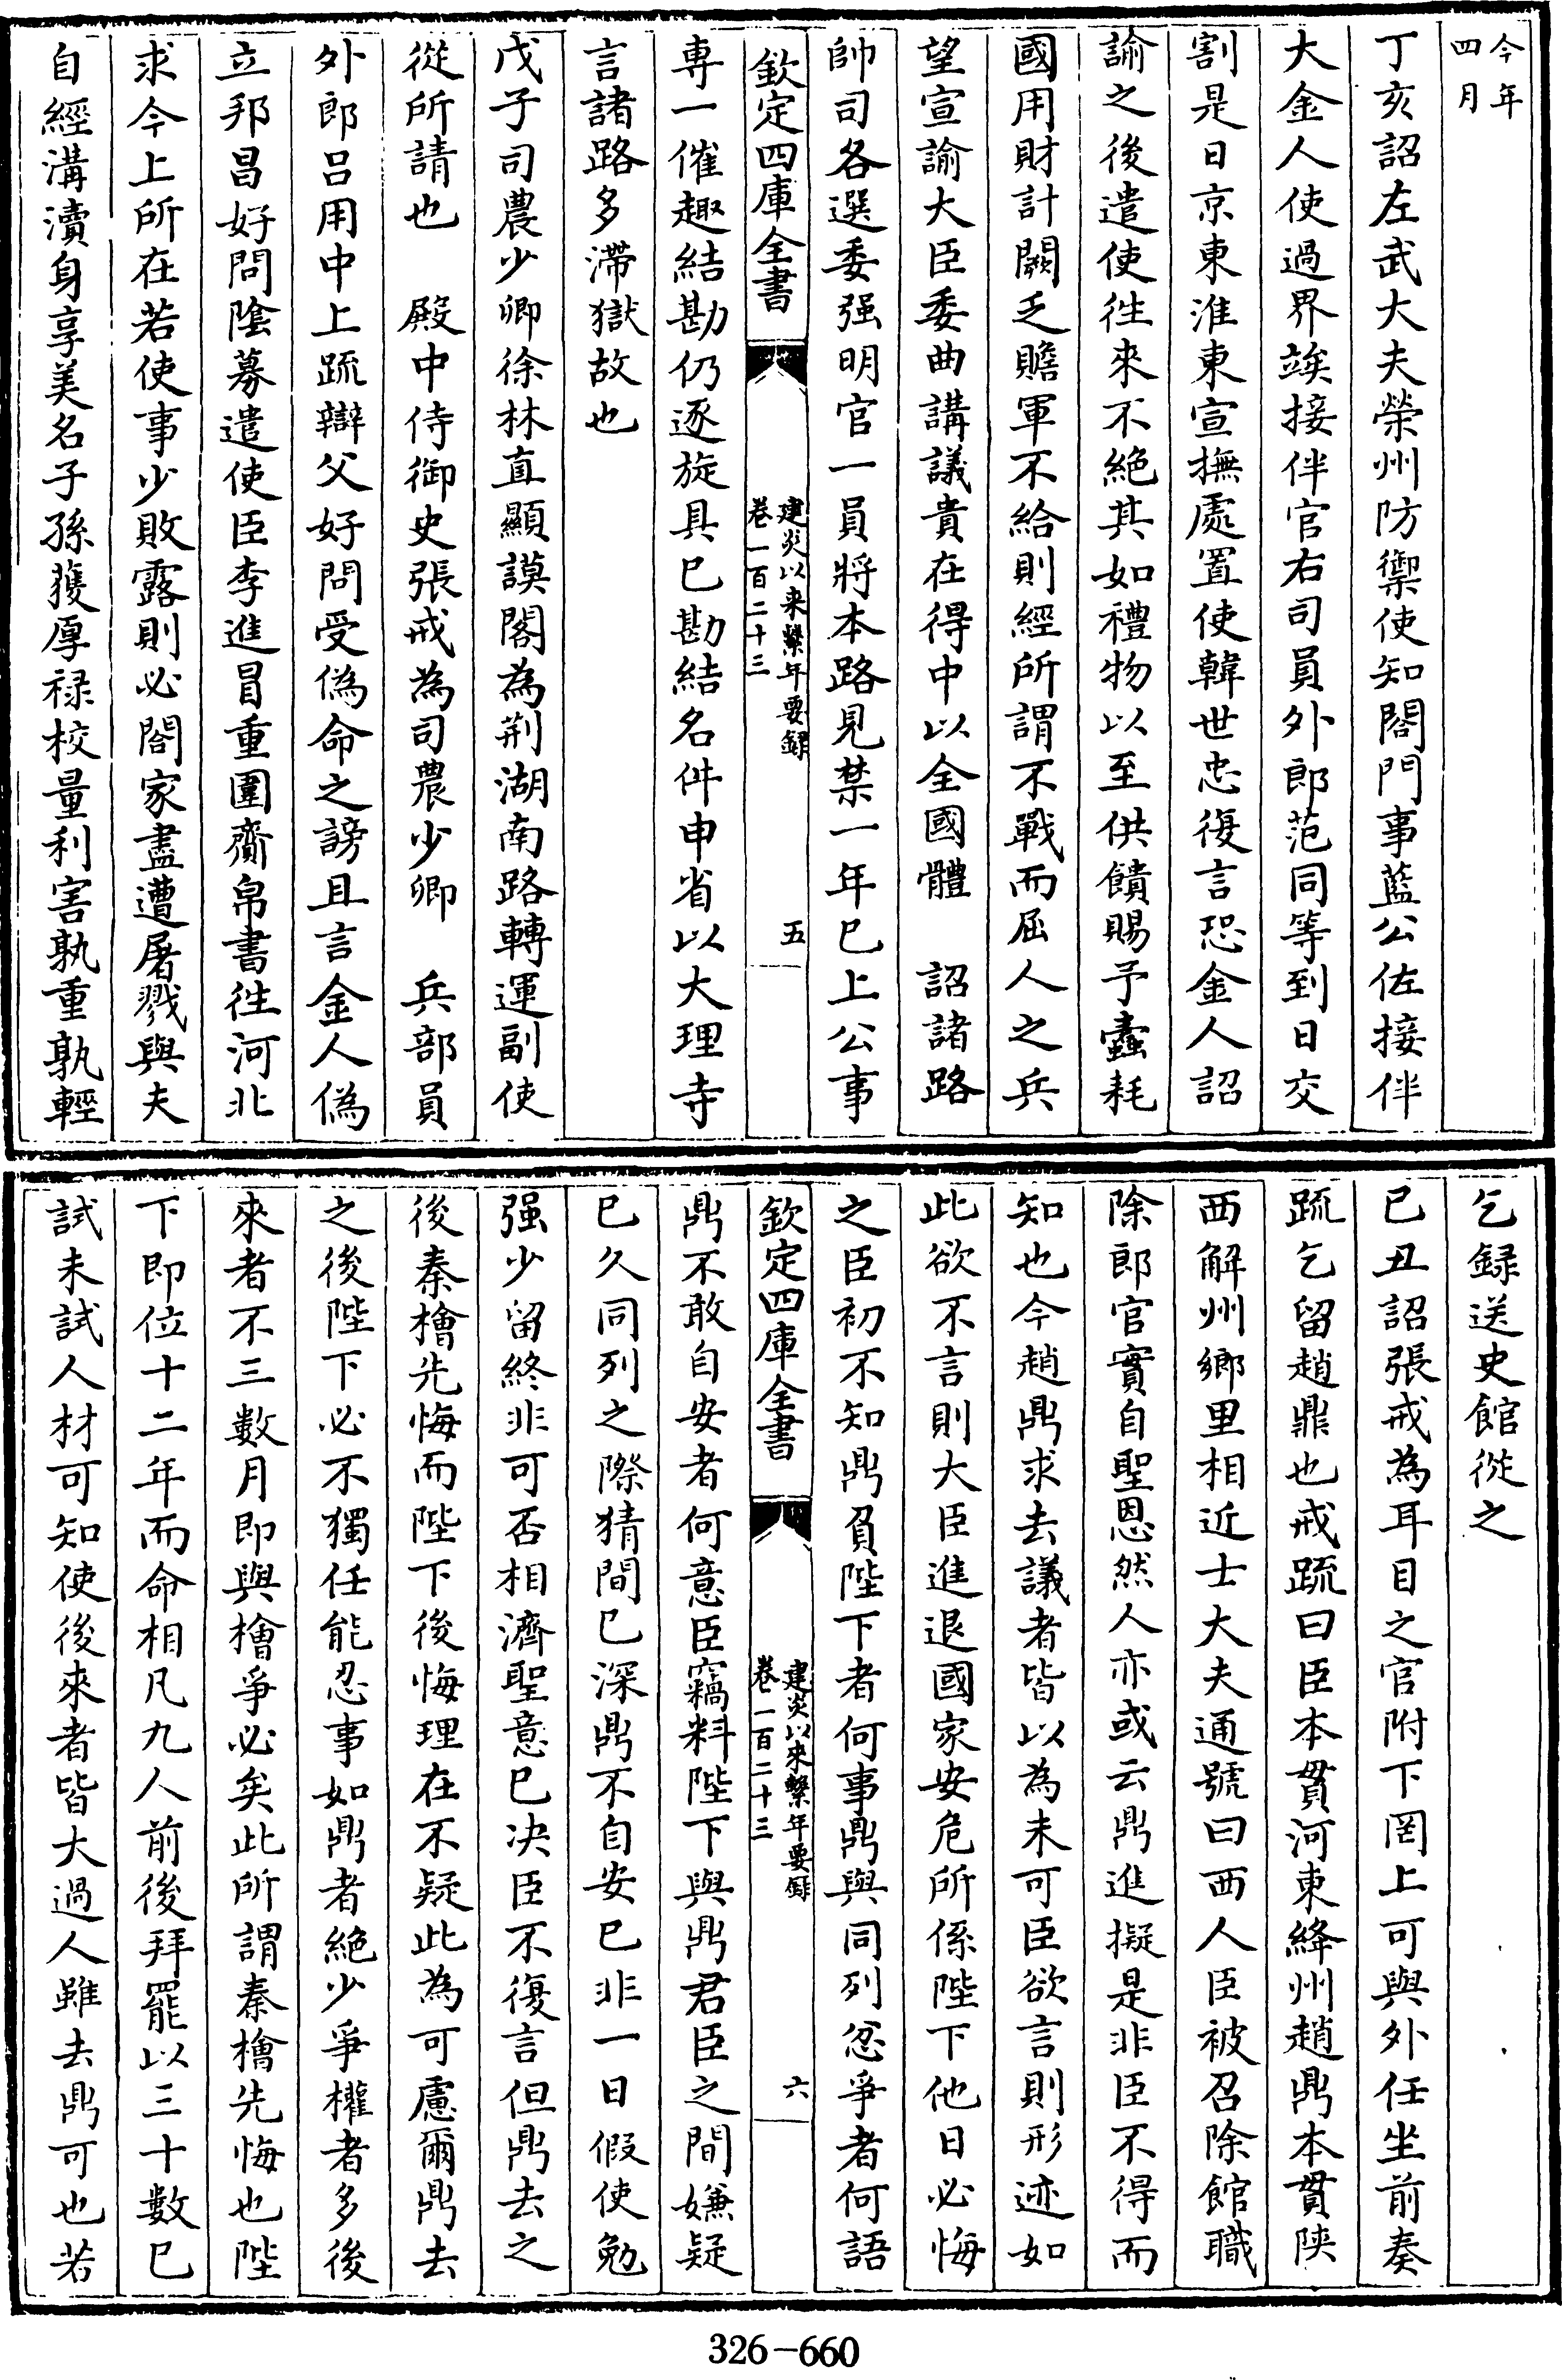 今年
四月
丁亥詔左武大夫榮州防禦使知閤門事藍公佐接伴
大金人使過界竢接伴官右司員外郎范同等到日交
割是日京東淮東宣撫處置使韓世忠復言恐金人詔
諭之後遣使徃來不絶其如禮物以至供饋賜予蠧耗
國用財計闕乏贍軍不給則經所謂不戰而屈人之兵
望宣諭大臣委曲講議貴在得中以全國體　詔諸路
帥司各選委强明官一員將本路見禁一年已上公事
欽定四庫全書
建炎以来繫年要録
卷一百二十三
五
專一催趣結勘仍逐旋具已勘結名件申省以大理寺
言諸路多滯獄故也
戊子司農少卿徐林直顯謨閣為荆湖南路轉運副使
從所請也　殿中侍御史張戒為司農少卿　兵部員
外郎吕用中上疏辯父好問受偽命之謗且言金人偽
立邦昌好問陰募遣使臣李進冒重圍齎帛書徃河北
求今上所在若使事少敗露則必闔家盡遭屠戮與夫
自經溝瀆身享美名子孫獲厚禄校量利害孰重孰輕
乞録送史館從之
已丑詔張戒為耳目之官附下罔上可與外任坐前奏
疏乞留趙鼎也戒疏曰臣本貫河東絳州趙鼎本貫陕
西解州鄉里相近士大夫通號曰西人臣被召除館職
除郎官實自聖恩然人亦或云鼎進擬是非臣不得而
知也今趙鼎求去議者皆以為未可臣欲言則形迹如
此欲不言則大臣進退國家安危所係陛下他日必悔
之臣初不知鼎負陛下者何事鼎與同列忿爭者何語
欽定四庫全書
建炎以來繫年要録
卷一百二十三
六
鼎不敢自安者何意臣竊料陛下與鼎君臣之間嫌疑
已久同列之際猜間已深鼎不自安已非一日假使勉
强少留終非可否相濟聖意已决臣不復言但鼎去之
後秦檜先悔而陛下後悔理在不疑此為可慮爾鼎去
之後陛下必不獨任能忍事如鼎者絶少爭權者多後
來者不三數月即與檜爭必矣此所謂秦檜先悔也陛
下即位十二年而命相凡九人前後拜罷以三十數已
試未試人材可知使後來者皆大過人雖去鼎可也若
326-660